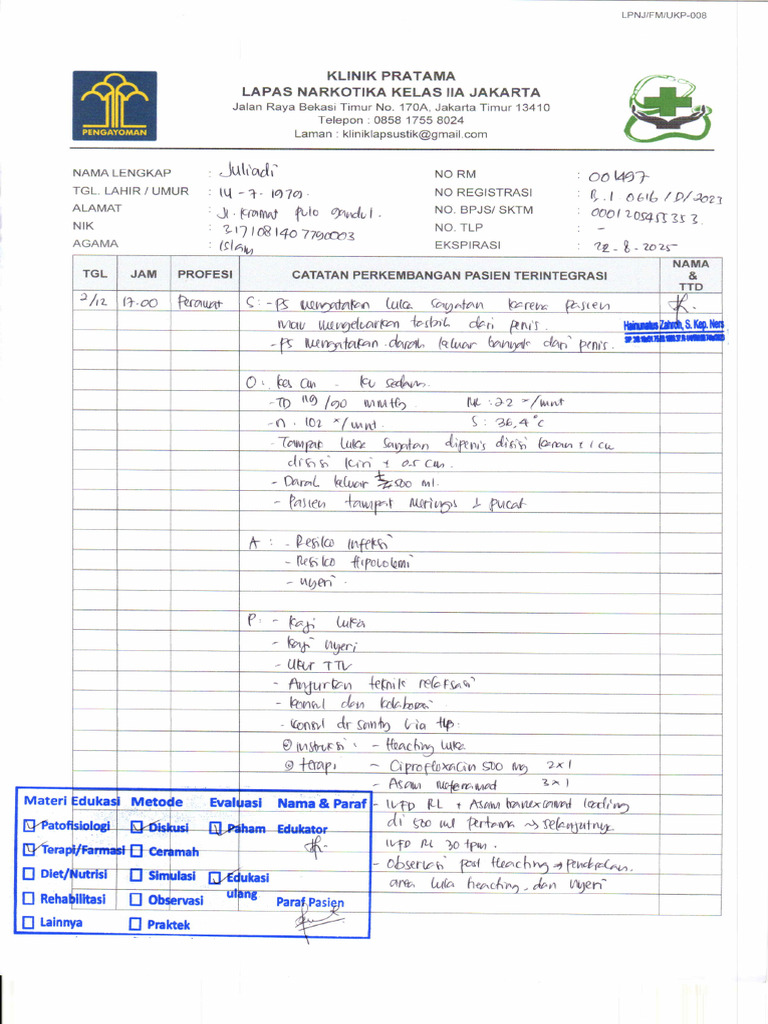 LPNJ/FM/UKP-008
KLINIK PRATAMA
LAPAS NARKOTIKA KELAS IIA JAKARTA
Jalan Raya Bekasi Timur No. 170A, Jakarta Timur 13410
Telepon : 0858 1755 8024
Laman : kliniklapsustik@gmail.com
PENGAYOMAN
NAMA LENGKAP : Juliadi
NO RM : 001497
TGL. LAHIR / UMUR : 14-7-1979.
NO REGISTRASI : B.I 0616/D/2023
ALAMAT : Jl. Kramat pulo gundul.
NO. BPJS/ SKTM : 0001205455353.
NIK : 3171081407790003
NO. TLP : -
AGAMA : Islam
EKSPIRASI : 22-8-2025
TGL JAM PROFESI CATATAN PERKEMBANGAN PASIEN TERINTEGRASI NAMA & TTD
2/12 17.00 Perawat S: - ps mengatakan luka sayatan karena pasien
mau mengeluarkan tasbih dari penis.
Hainunatus Zahroh, S. Kep. Ners
- ps mengatakan darah keluar banyak dari penis.
O: kes cm - ku sedang
- TD 119/90 mmHg RR : 22 x/mnt
- n. 102 x/mnt S : 36,4°c
- Tampak luka sayatan dipenis disisi kanan ± 1 cm
disisi kiri ± 0.5 cm.
- Darah keluar ± 500 ml.
- Pasien tampak meringis & pucat
A : - Resiko infeksi
- Resiko Hipovolemi
- nyeri.
P: - kaji luka
- kaji nyeri
- Ukur TTV
- Anjurkan teknik relaksasi
- konsul dan kolaborasi
- konsul dr santy via tlp.
instruksi : - Heacting luka
terapi - Ciprofloxacin 500 mg 2x1
- Asam mefenamat 3x1
- IVFD RL + Asam tranexamat loading
di 500 ml pertama → selanjutnya
IVFD RL 30 tpm.
- Observasi post Heacting →
area luka heacting dan nyeri
Materi Edukasi Metode Evaluasi Nama & Paraf
Patofisiologi Diskusi Paham Edukator
Terapi/Farmasi Ceramah
Diet/Nutrisi Simulasi Edukasi ulang
Rehabilitasi Observasi Paraf Pasien
Lainnya Praktek